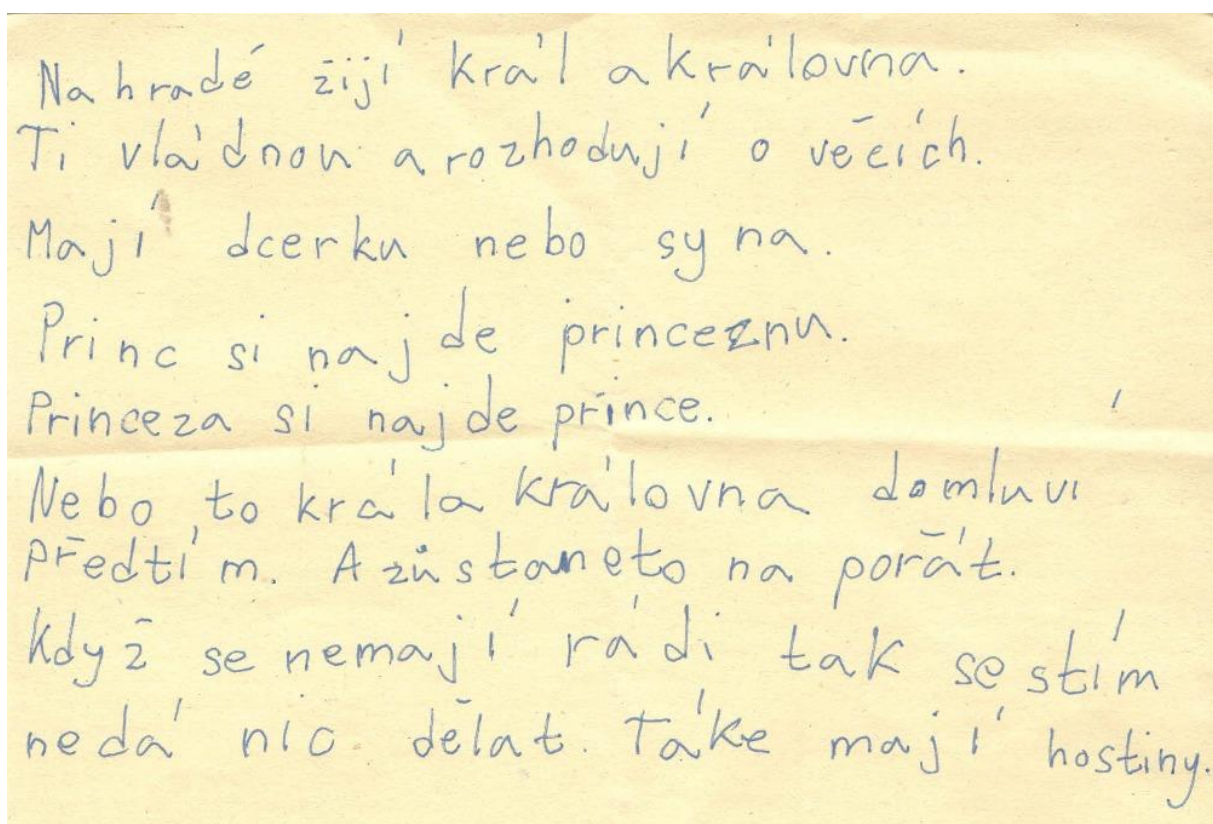 Na hradé žijí král a královna.
Ti vládnou a rozhodují o věcích.
Mají dcerku nebo syna.
Princ si najde princeznu.
Princeza si najde prince.
Nebo to král a královna domluví
předtím. A zůstane to na pořát.
Když se nemají rádi tak se stím
nedá nic dělat. Táke mají hostiny.